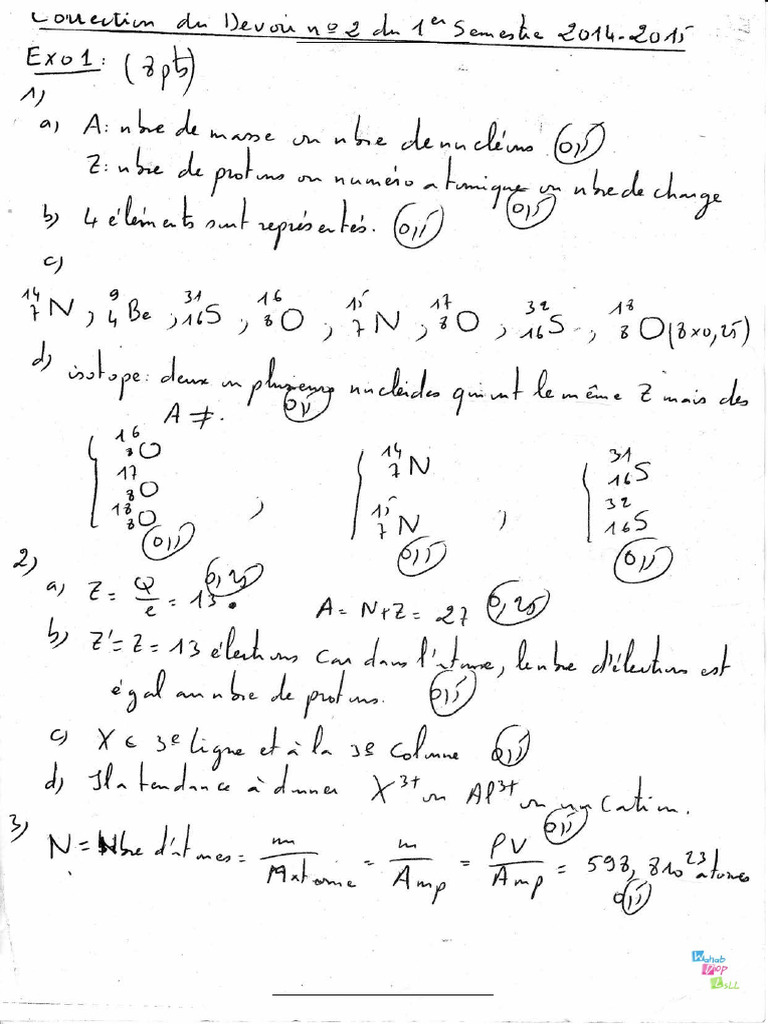 Correction du Devoir n°2 du 1er Semestre 2014-2015
Exo1: (8pts)
1)
a) A: nbre de masse ou nbre de nucléons (0,5)
Z: nbre de protons ou numéro atomique ou nbre de charge (0,5)
b) 4 éléments sont représentés. (0,5)
c)
¹⁴₇N, ⁹₄Be, ³¹₁₆S, ¹⁶₈O, ¹⁵₇N, ¹⁷₈O, ³²₁₆S, ¹⁸₈O (8x0,25)
d) isotope: deux ou plusieurs nucléides qui ont le même Z mais des
A ≠. (0,5)
{ ¹⁶₈O ¹⁷₈O ¹⁸₈O (0,5) , { ¹⁴₇N ¹⁵₇N (0,5) , { ³¹₁₆S ³²₁₆S (0,5)
2)
a) Z = Q/e = 13. (0,25) A = N+Z = 27 (0,25)
b) Z' = Z = 13 électrons car dans l'atome, le nbre d'électrons est
égal au nbre de protons. (0,5)
c) X ∈ 3e ligne et à la 3e colonne (0,5)
d) Il a tendance à donner X³⁺ ou Al³⁺ ou un cation. (0,5)
3)
N = Nbre d'atomes = m/Matome = m/Amp = PV/Amp = 598,8 10²³ atomes (0,5)
Wahab
Diop
LSLL